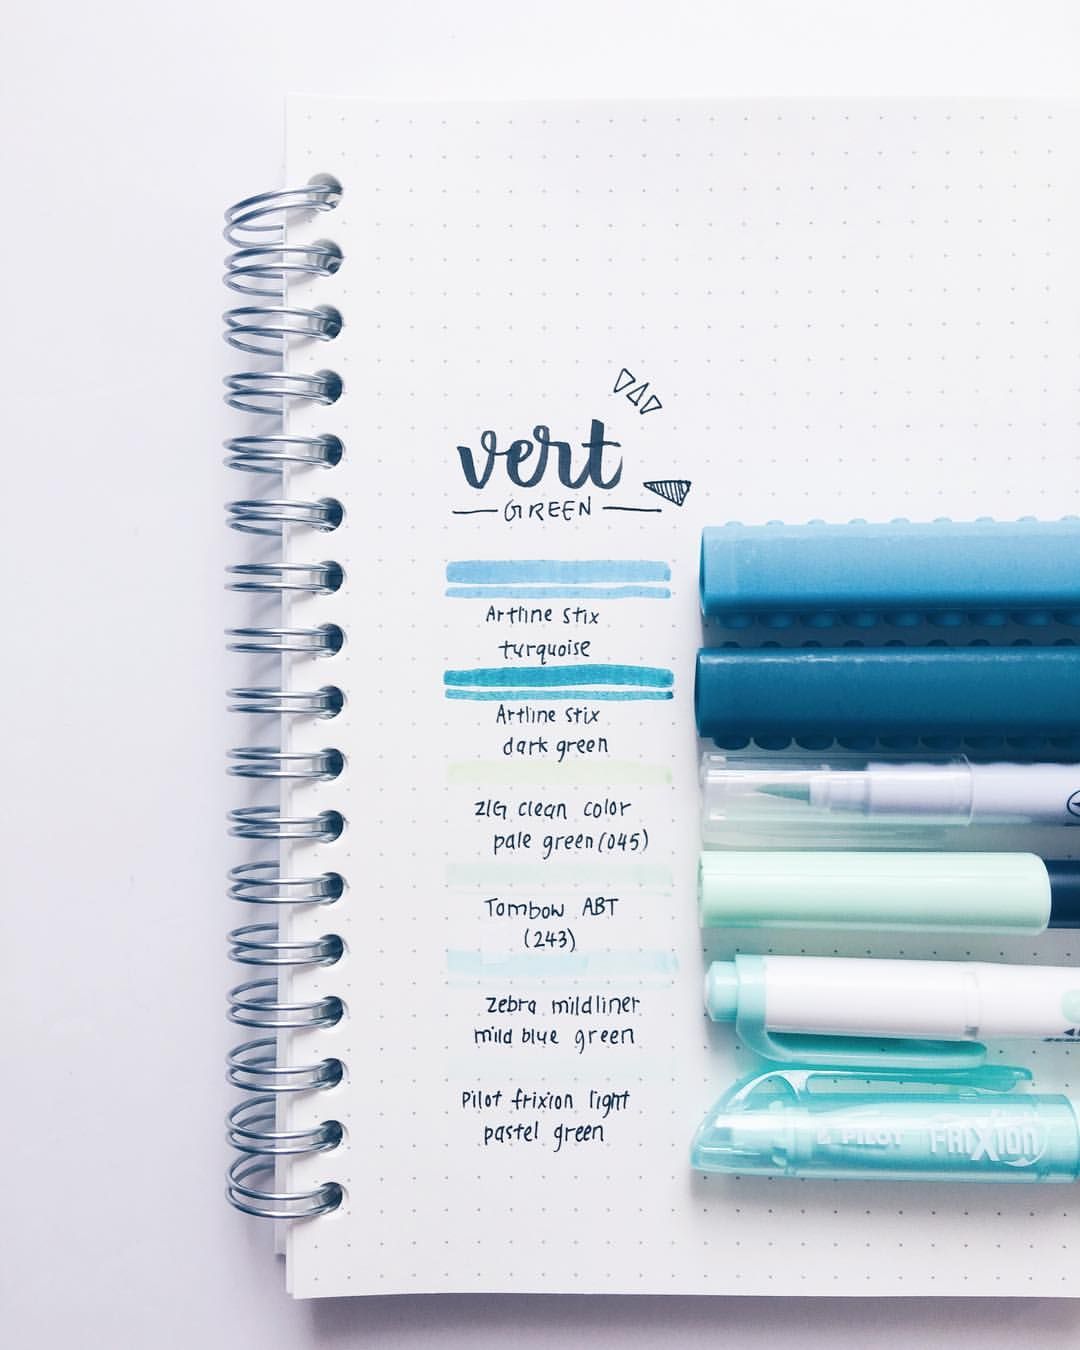 vert
GREEN
Artline Stix
turquoise
Artline Stix
dark green
ZIG clean color
pale green (045)
Tombow ABT
(243)
Zebra mildliner
mild blue green
Pilot frixion light
pastel green
PILOT FRIXION